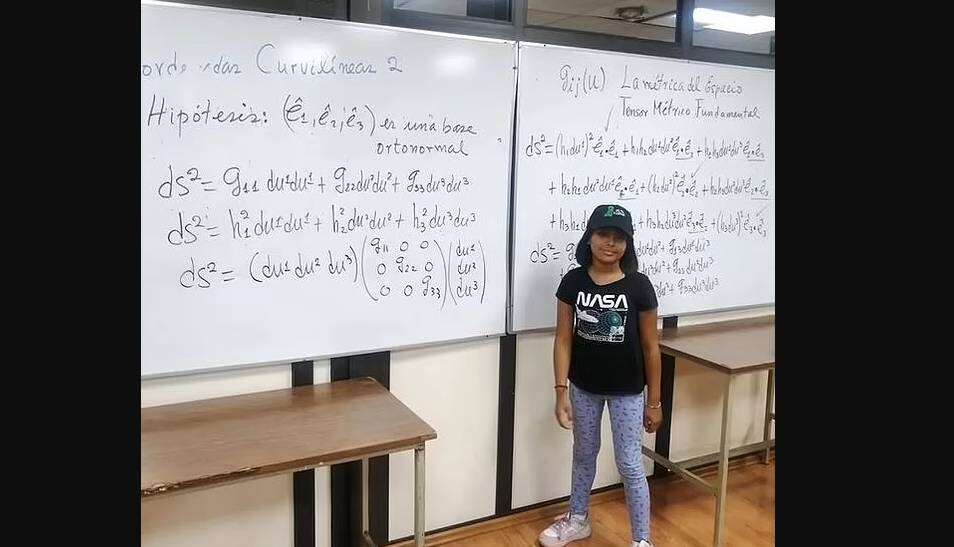 Curvilíneas 2
Hipótesis: (ê₁, ê₂, ê₃) es una base
ortonormal
ds² = g₁₁ du¹du¹ + g₂₂ du²du² + g₃₃ du³du³
ds² = h₁² du¹du¹ + h₂² du²du² + h₃² du³du³
ds² = (du¹ du² du³) (g₁₁ 0 0) (du¹)
(0 g₂₂ 0) (du²)
(0 0 g₃₃) (du³)
gᵢⱼ(u) La métrica del Espacio
Tensor Métrico Fundamental
ds² = (h₁du¹)² ê₁•ê₁ + h₁h₂du¹du² ê₁•ê₂ + h₁h₃du¹du³ ê₁•ê₃
+ h₂h₁du²du¹ ê₂•ê₁ + (h₂du²)² ê₂•ê₂ + h₂h₃du²du³ ê₂•ê₃
+ h₃h₁ h₃h₂du³du² ê₃•ê₂ + (h₃du³)² ê₃•ê₃
ds² =
+ g₂₃du²du³
+ g₃₃du³du³
NASA